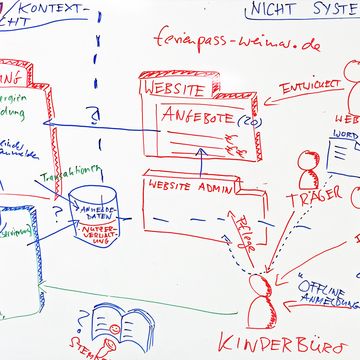 /KONTEXT-
CHT
NICHT SYSTE
ferienpass-weimar.de
NG
WEBSITE
ENTWICKELT
ANGEBOTE (20)
ergien
dung
WEB
WORD
anmelden
Transaktionen
?
WEBSITE ADMIN
TRÄGER
ANMELDE-
DATEN
NUTZER-
VERWALT-
UNG
?
Pflege
"OFFLINE
ANMELDUNG
?
STEMP
KINDERBÜRO